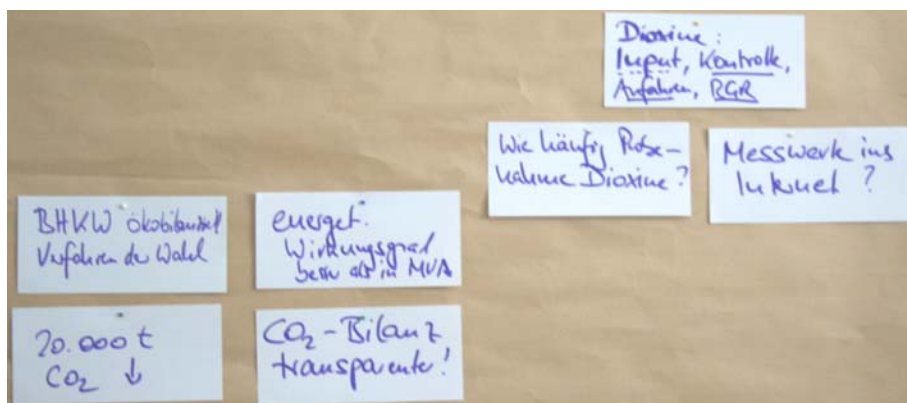 Dioxine:
Input, Kontrolle,
Anfahren, RGR
Wie häufig Probe-
nahme Dioxine?
Messwerte ins
Internet?
BHKW ökobilanziell
Verfahren der Wahl
energet.
Wirkungsgrad
besser als in MVA
20.000 t
CO2 ↓
CO2-Bilanz
transparenter!